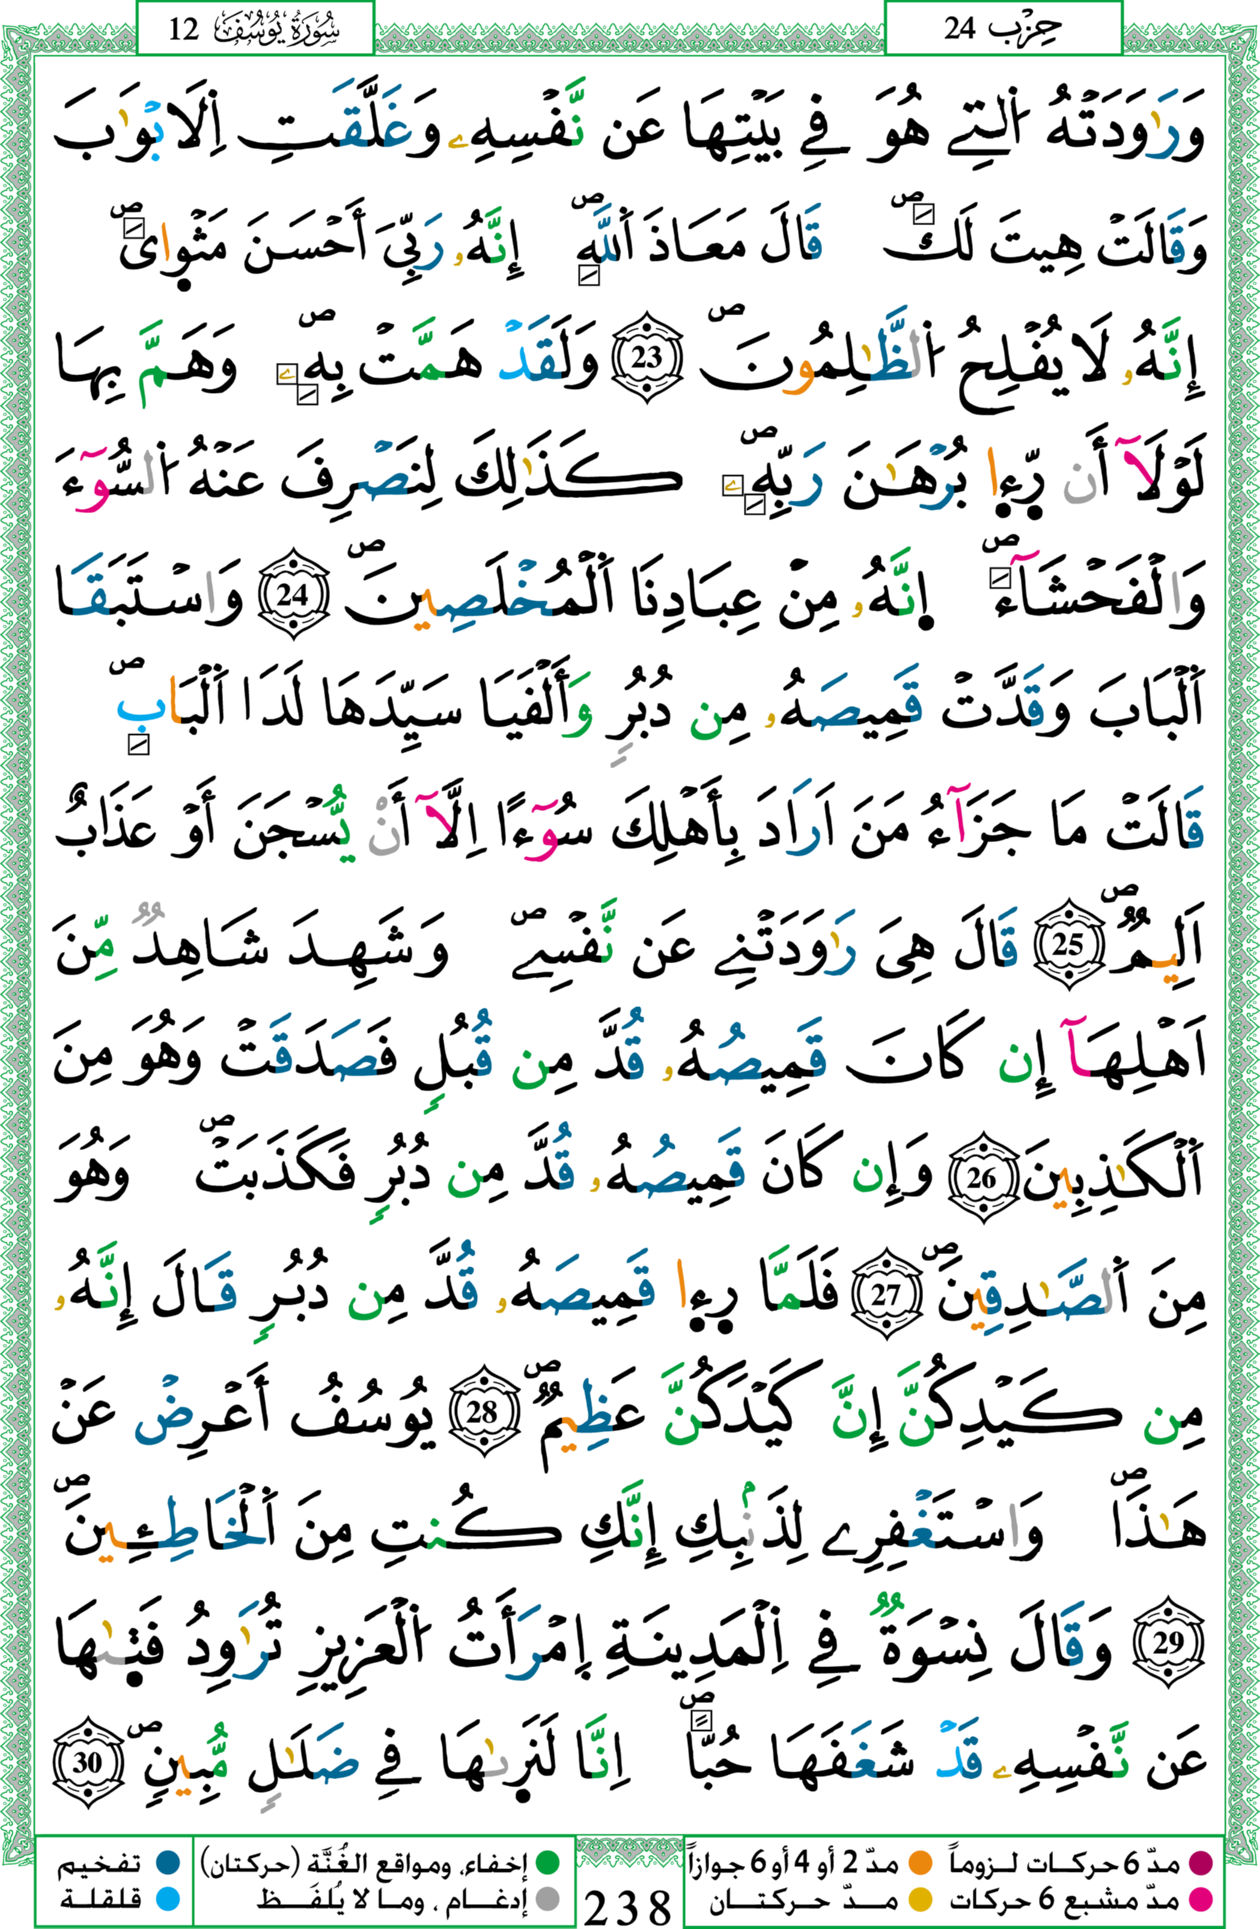 حِزْب 24
سُورَةُ يُوسُفَ 12
وَرَٰوَدَتْهُ اُ۬لتِے هُوَ فِے بَيْتِهَا عَن نَّفْسِهِۦ وَغَلَّقَتِ اِ۬لَابْوَٰبَ
وَقَالَتْ هِيتَ لَكَۖ قَالَ مَعَاذَ اَ۬للَّهِۖ إِنَّهُۥ رَبِّيَ أَحْسَنَ مَثْو۪ايَۖ
إِنَّهُۥ لَا يُفْلِحُ اُ۬لظَّٰلِمُونَۖ 23 وَلَقَدْ هَمَّتْ بِهِۦۖ وَهَمَّ بِهَا
لَوْلَآ أَن رّ۪ء۪ا بُرْهَٰنَ رَبِّهِۦۖ كَذَٰلِكَ لِنَصْرِفَ عَنْهُ اُ۬لسُّوٓءَ
وَالْفَحْشَآءَۖ ا۪نَّهُۥ مِنْ عِبَادِنَا اَ۬لْمُخْلَصِينَۖ 24 وَاسْتَبَقَا
اَ۬لْبَابَ وَقَدَّتْ قَمِيصَهُۥ مِن دُبُرٖ وَأَلْفَيَا سَيِّدَهَا لَدَا اَ۬لْبَابِۖ
قَالَتْ مَا جَزَآءُ مَنَ اَرَادَ بِأَهْلِكَ سُوٓءًا اِلَّآ أَنْ يُّسْجَنَ أَوْ عَذَابٌ
اَلِيمٌۖ 25 قَالَ هِيَ رَٰوَدَتْنِے عَن نَّفْسِےۖ وَشَهِدَ شَاهِدٞ مِّنَ
اَهْلِهَآ إِن كَانَ قَمِيصُهُۥ قُدَّ مِن قُبُلٖ فَصَدَقَتْ وَهُوَ مِنَ
اَ۬لْكَٰذِبِينَ 26 وَإِن كَانَ قَمِيصُهُۥ قُدَّ مِن دُبُرٖ فَكَذَبَتْۖ وَهُوَ
مِنَ اَ۬لصَّٰدِقِينَۖ 27 فَلَمَّا ر۪ء۪ا قَمِيصَهُۥ قُدَّ مِن دُبُرٖ قَالَ إِنَّهُۥ
مِن كَيْدِكُنَّ إِنَّ كَيْدَكُنَّ عَظِيمٞۖ 28 يُوسُفُ أَعْرِضْ عَنْ
هَٰذَاۖ وَاسْتَغْفِرِے لِذَنۢبِكِ إِنَّكِ كُنتِ مِنَ اَ۬لْخَاطِـِٕينَۖ
29 وَقَالَ نِسْوَةٞ فِے اِ۬لْمَدِينَةِ اِ۪مْرَأَتُ اُ۬لْعَزِيزِ تُرَٰوِدُ فَت۪يٰهَا
عَن نَّفْسِهِۦ قَدْ شَغَفَهَا حُبّاًۖ اِنَّا لَنَر۪يٰهَا فِے ضَلَٰلٖ مُّبِينٖۖ 30
مدّ 6 حركات لـزوماً
مدّ 2 أو 4 أو 6 جوازاً
مدّ مشبع 6 حركات
مــدّ حركتــان
238
إخفاء، ومواقع الغُنَّة (حركتان)
تفخيم
إدغـام ، ومـا لا يُلفَـظ
قلقلة